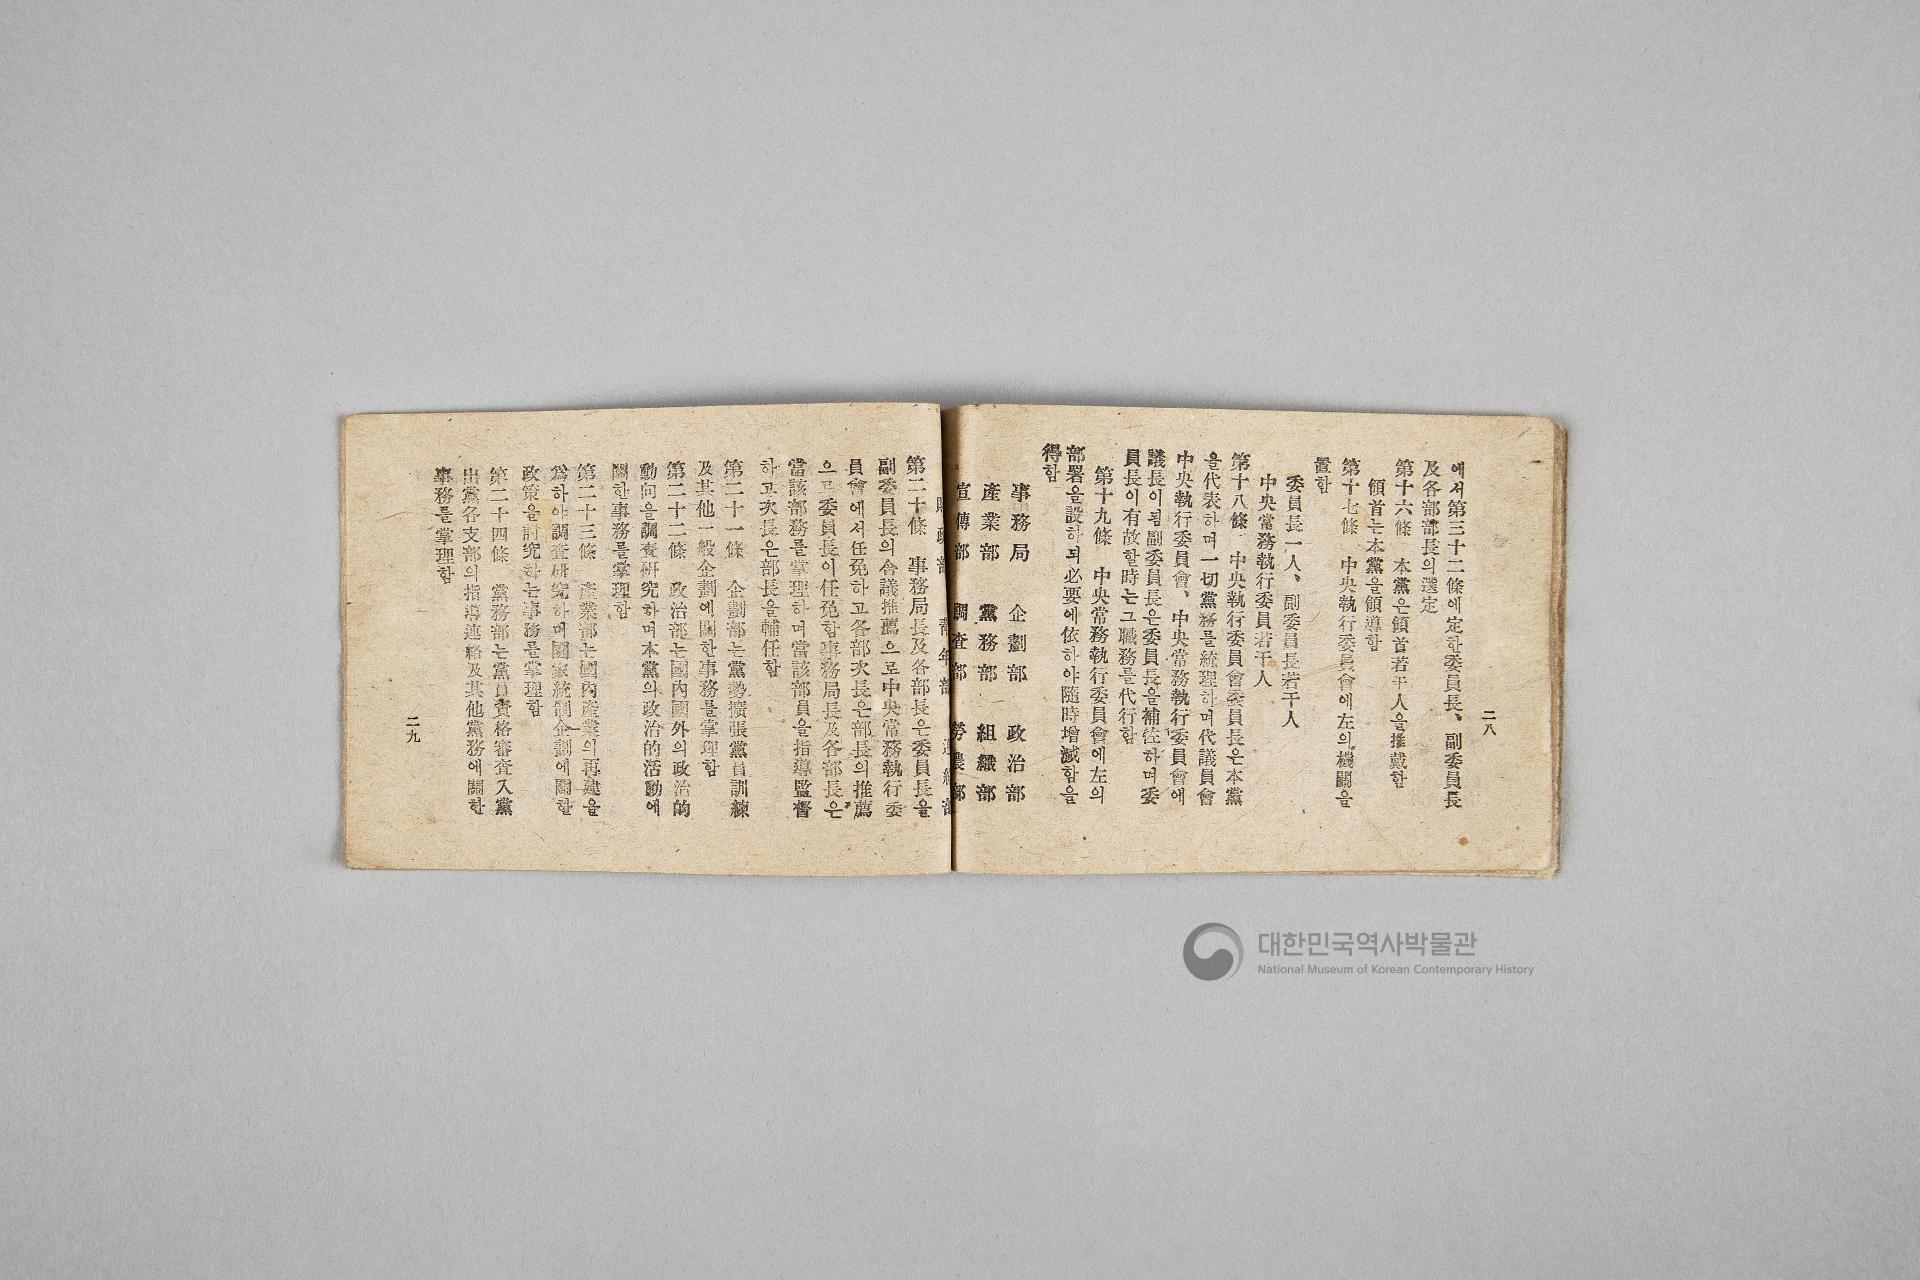 二八
에서第三十二條에定한委員長、副委員長
及各部部長의選定
第十六條 本黨은領首若干人을推戴함
領首는本黨을領導함
第十七條 中央執行委員會에左의機關을
置함
委員長一人、副委員長若干人
中央常務執行委員若干人
第十八條 中央執行委員會委員長은本黨
을代表하며一切黨務를統理하며代議員會
中央執行委員會、中央常務執行委員會에
議長이됨副委員長은委員長을補佐하며委
員長이有故할時는그職務를代行함
第十九條 中央常務執行委員會에左의
部署을設하되必要에依하야隨時增減함을
得함
事務局 企劃部 政治部
產業部 黨務部 組織部
宣傳部 調査部 勞農部
財政部 靑年部 連絡部
第二十條 事務局長及各部長은委員長을
副委員長의合議推薦으로中央常務執行委
員會에서任免하고各部次長은部長의推薦
으로委員長이任免함事務局長及各部長은
當該部務를掌理하며當該部員을指導監督
하고次長은部長을輔任함
第二十一條 企劃部는黨勢擴張黨員訓練
及其他一般企劃에關한事務를掌理함
第二十二條 政治部는國內國外의政治的
動向을調査硏究하며本黨의政治的活動에
關한事務를掌理함
第二十三條 產業部는國內產業의再建을
爲하야調査硏究하며國家統制企劃에關한
政策을討究하는事務를掌理함
第二十四條 黨務部는黨員資格審査入黨
出黨各支部의指導連絡及其他黨務에關한
事務를掌理함
二九
대한민국역사박물관
National Museum of Korean Contemporary History